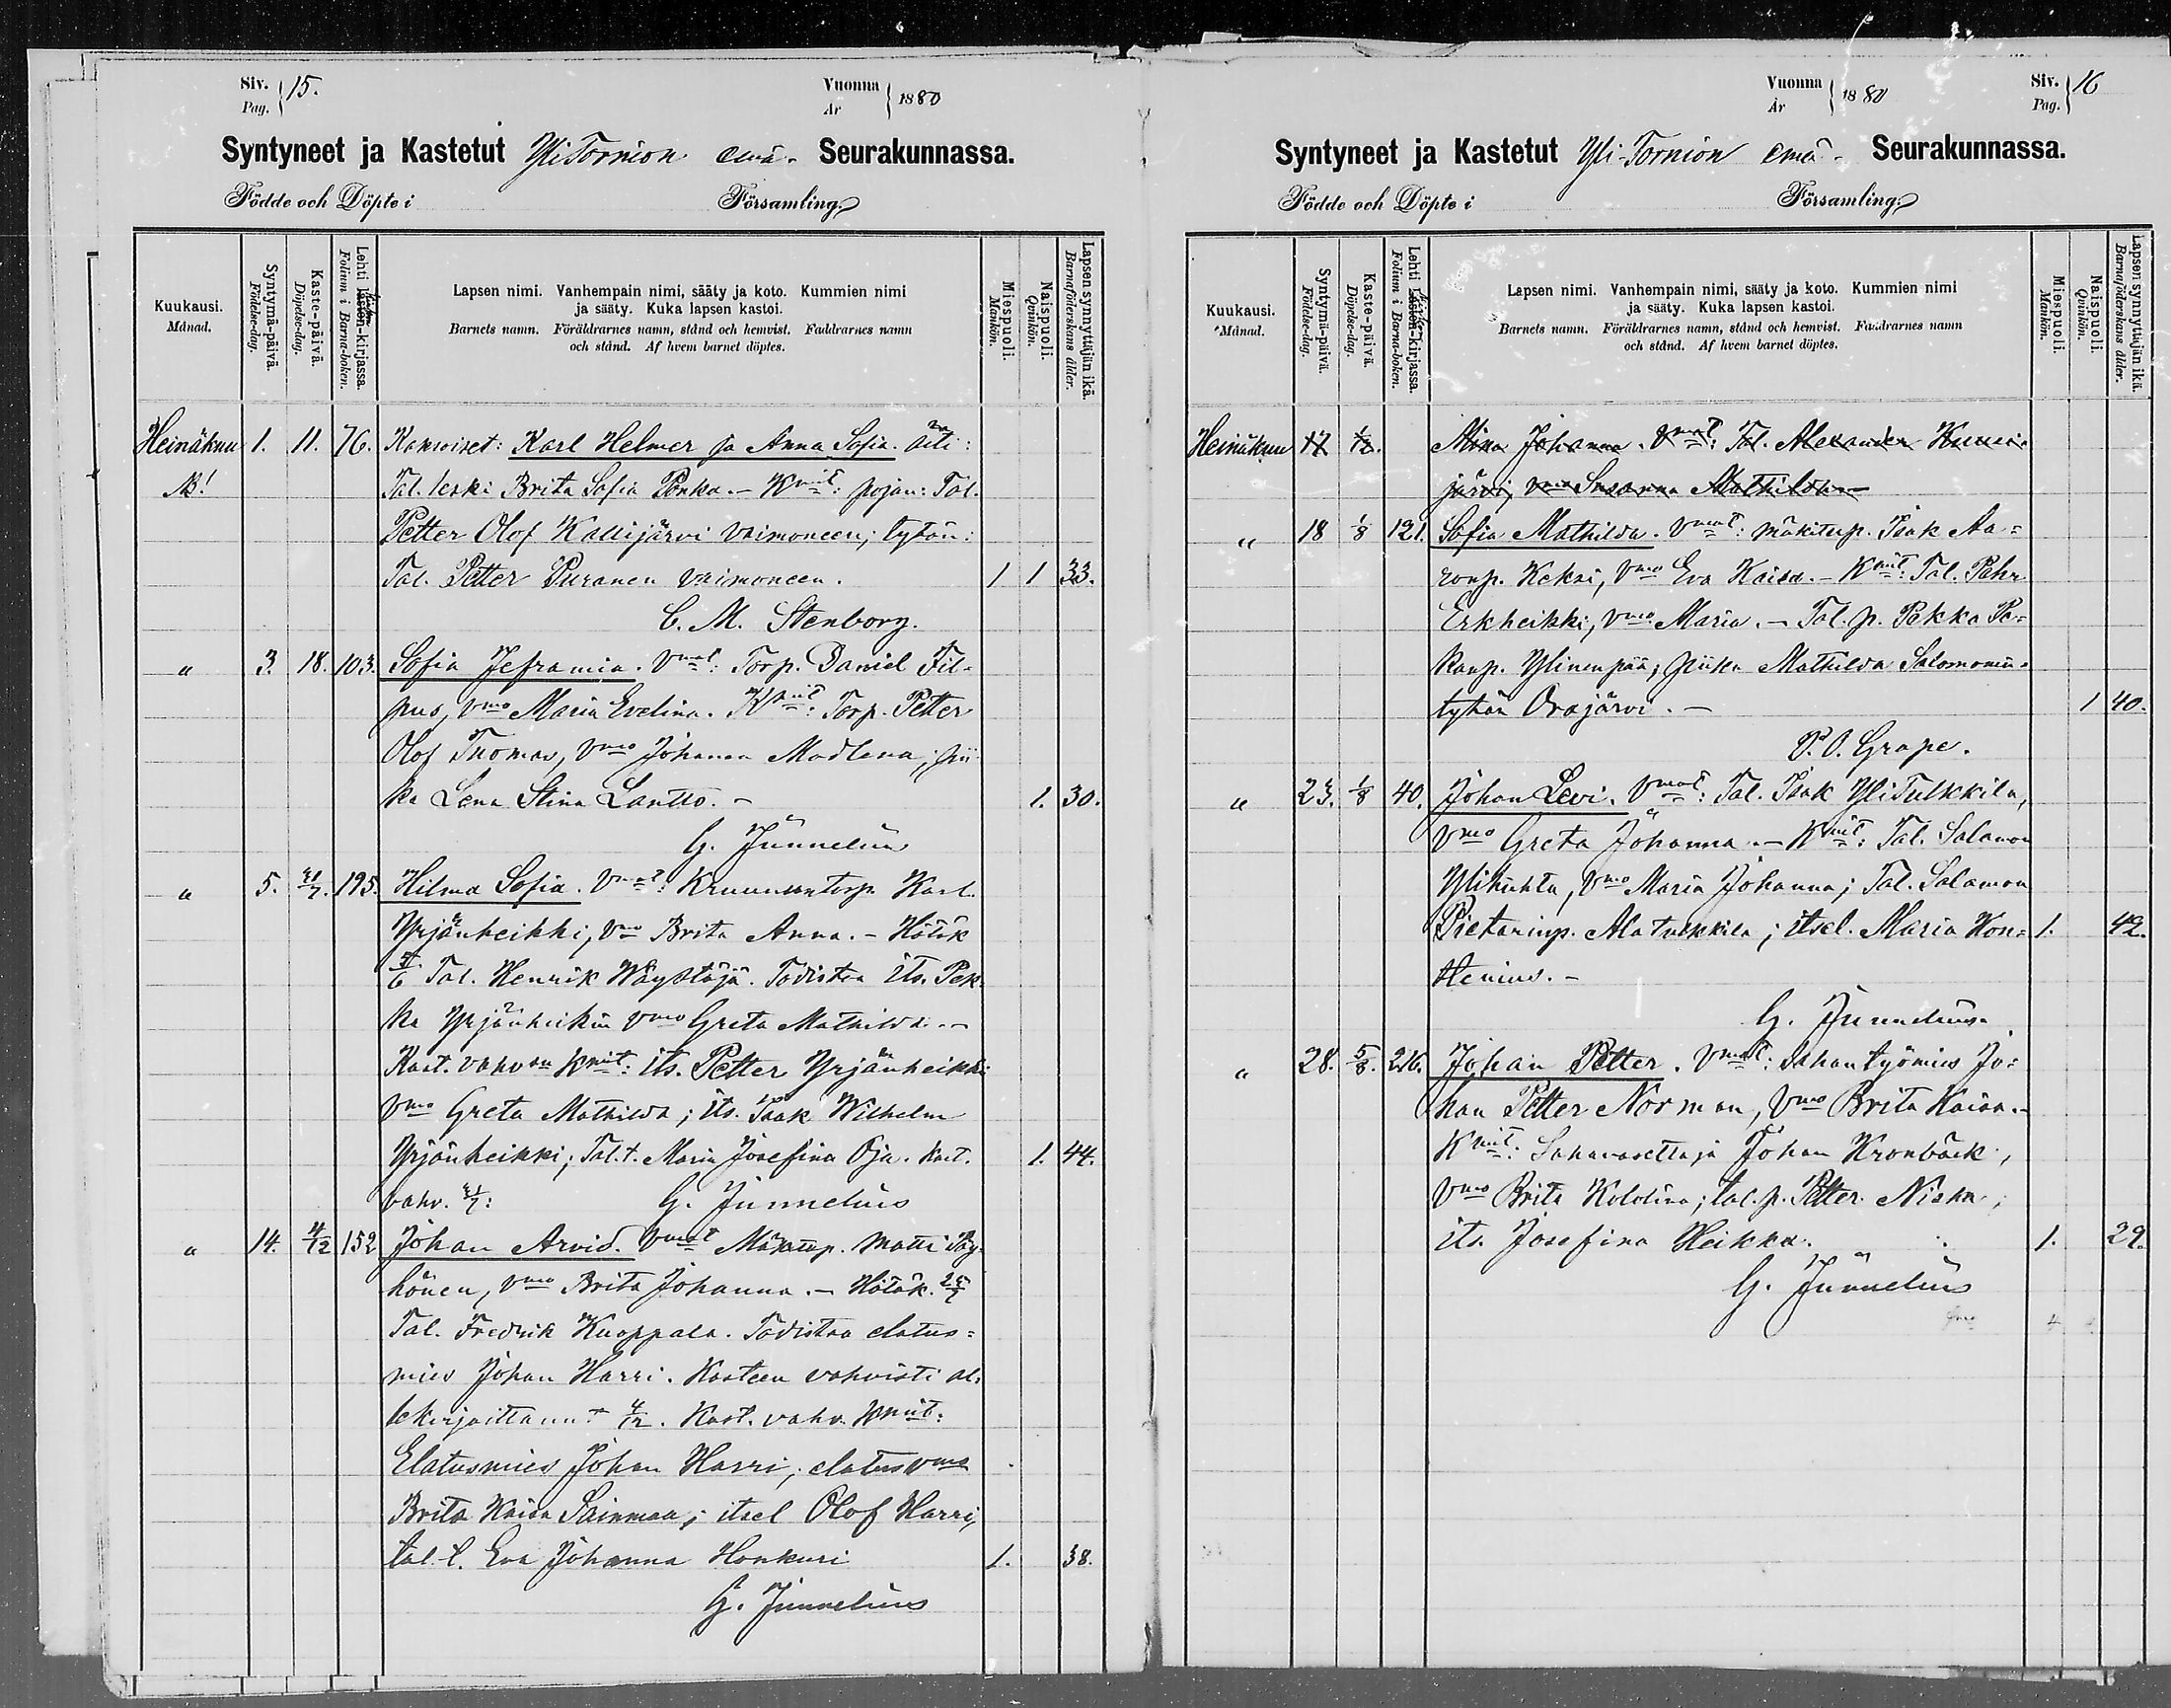 Siv. 15.
Pag.
Vuonna 1880
År
Syntyneet ja Kastetut YliTornion emä- Seurakunnassa.
Födde och Döpte i Församling
Kuukausi.
Månad.
Syntymä-päivä.
Födelse-dag.
Kaste-päivä.
Döpelse-dag.
Lehti Lasten-kirjassa.
Folium i Barna-boken.
Lapsen nimi. Vanhempain nimi, sääty ja koto. Kummien nimi
ja sääty. Kuka lapsen kastoi.
Barnets namn. Föräldrarnes namn, stånd och hemvist. Faddrarnes namn
och stånd. Af hvem barnet döptes.
Miespuoli.
Mankön.
Naispuoli.
Qvinkön.
Lapsen synnyttäjän ikä.
Barnaföderskans ålder.
Heinäkuu 1. 11. 76. Kaksoiset: Karl Helmer ja Anna Sofia. äiti:
NB! Tal. leski Brita Sofia Ponka. – Kmit: pojan: Tal.
Petter Olof Kallijärvi vaimoneen; tytön:
Tal. Petter Puranen vaimoneen. 1 1 33.
C. M. Stenborg.
" 3. 18. 103. Sofia Jeframia. Vmat: Torp. Daniel Fil-
pus, vmo Maria Evelina. Kmit: Torp. Petter
Olof Thomas, Vmo Johanna Madlena; pii-
ka Lena Stina Lantto. – 1. 30.
G. Junnelius
" 5. 31/7. 195. Hilma Sofia. Vmat: Kruununtorp. Karl
Yrjänheikki, Vmo Brita Anna. – Hätäk
Tal. Henrik Wäystäjä. Todistaa its. Pek-
ka Yrjänheikin vmo Greta Mathilda. –
Kast. vahvan Kmit: its. Petter Yrjänheikki
vmo Greta Mathilda; its. Isak Wilhelm
Yrjänheikki; Tal. t. Maria Josefina Oja. Kast. 1. 44.
vahv. 31/7: G. Junnelius
" 14. 4/12 152 Johan Arvid. Vmat Mäkitup. Matti Pöy-
hönen, vmo Brita Johanna. – Hätäk.
Tal. Fredrik Kuoppala. Todistaa elatus=
mies Johan Harri. Kasteen vahvisti al-
lekirjoittanut 4/12. Kast. vahv. kmit:
Elatusmies Johan Harri; elatusvmo
Brita Kaisa Sainmaa; itsel Olof Harri,
tal. t. Eva Johanna Honkuri 1. 38.
G. Junnelius
Vuonna 1880
År
Siv. 16
Pag.
Syntyneet ja Kastetut Yli-Tornion emä- Seurakunnassa.
Födde och Döpte i Församling
Kuukausi.
Månad.
Syntymä-päivä.
Födelse-dag.
Kaste-päivä.
Döpelse-dag.
Lehti Lasten-kirjassa.
Folium i Barna-boken.
Lapsen nimi. Vanhempain nimi, sääty ja koto. Kummien nimi
ja sääty. Kuka lapsen kastoi.
Barnets namn. Föräldrarnes namn, stånd och hemvist. Faddrarnes namn
och stånd. Af hvem barnet döptes.
Miespuoli.
Mankön.
Naispuoli.
Qvinkön.
Lapsen synnyttäjän ikä.
Barnaföderskans ålder.
Heinäkuu 17 Mina Johanna. Vmat: Tal. Alexander
järvi, vmo Susanna Mathilda –
" 18 1/8 121. Sofia Mathilda. Vmat: mäkitup. Isak Aa=
ronp. Keksi, Vmo Eva Kaisa. – Kmit: Tal. Pehr
Erkheikki, vmo Maria. – Tal. p. Pekka Pe=
kanp. Ylinenpää; piika Mathilda Salomonin-
tytön Orajärvi. – 1 40.
P. O. Grape.
" 23. 1/8 40. Johan Levi. Vmat: Tal. Isak YliTulkkila,
vmo Greta Johanna. – Kmit: Tal. Salamon
Ylikuhta, Vmo Maria Johanna; Tal. Salamon
Pietarinp. Alatulkkila; itsel. Maria Kon= 1. 42.
tlenius. –
G. Junnelius
" 28. 5/8. 216. Johan Petter. Vmat: Sahantyömies Jo=
han Petter Norman, Vmo Brita Kaisa. –
Kmit: Sahanasettaja Johan Kronbäck,
Vmo Brita Kilolina; tal. p. Petter Niska;
its. Josefina Heikka. 1. 29.
G. Junnelius